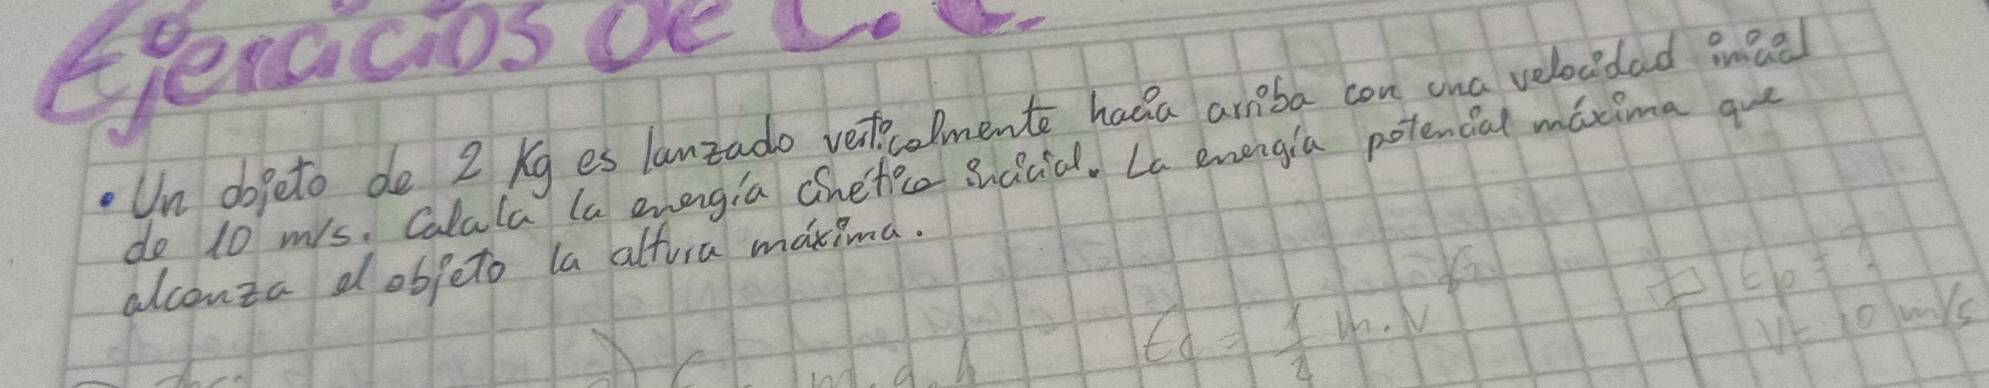 Ejercicios de C.E.
• Un objeto de 2 Kg es lanzado verticalmente hacia arriba con una velocidad inicial
de 10 m/s. Calcula la energía cinética inicial. La energía potencial máxima que
alcanza el objeto la altura máxima.
Ep = ?
Ec = 1/2 m.v
V= 10 m/s
m.g.h